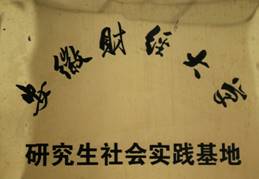 安徽财经大学
研究生社会实践基地